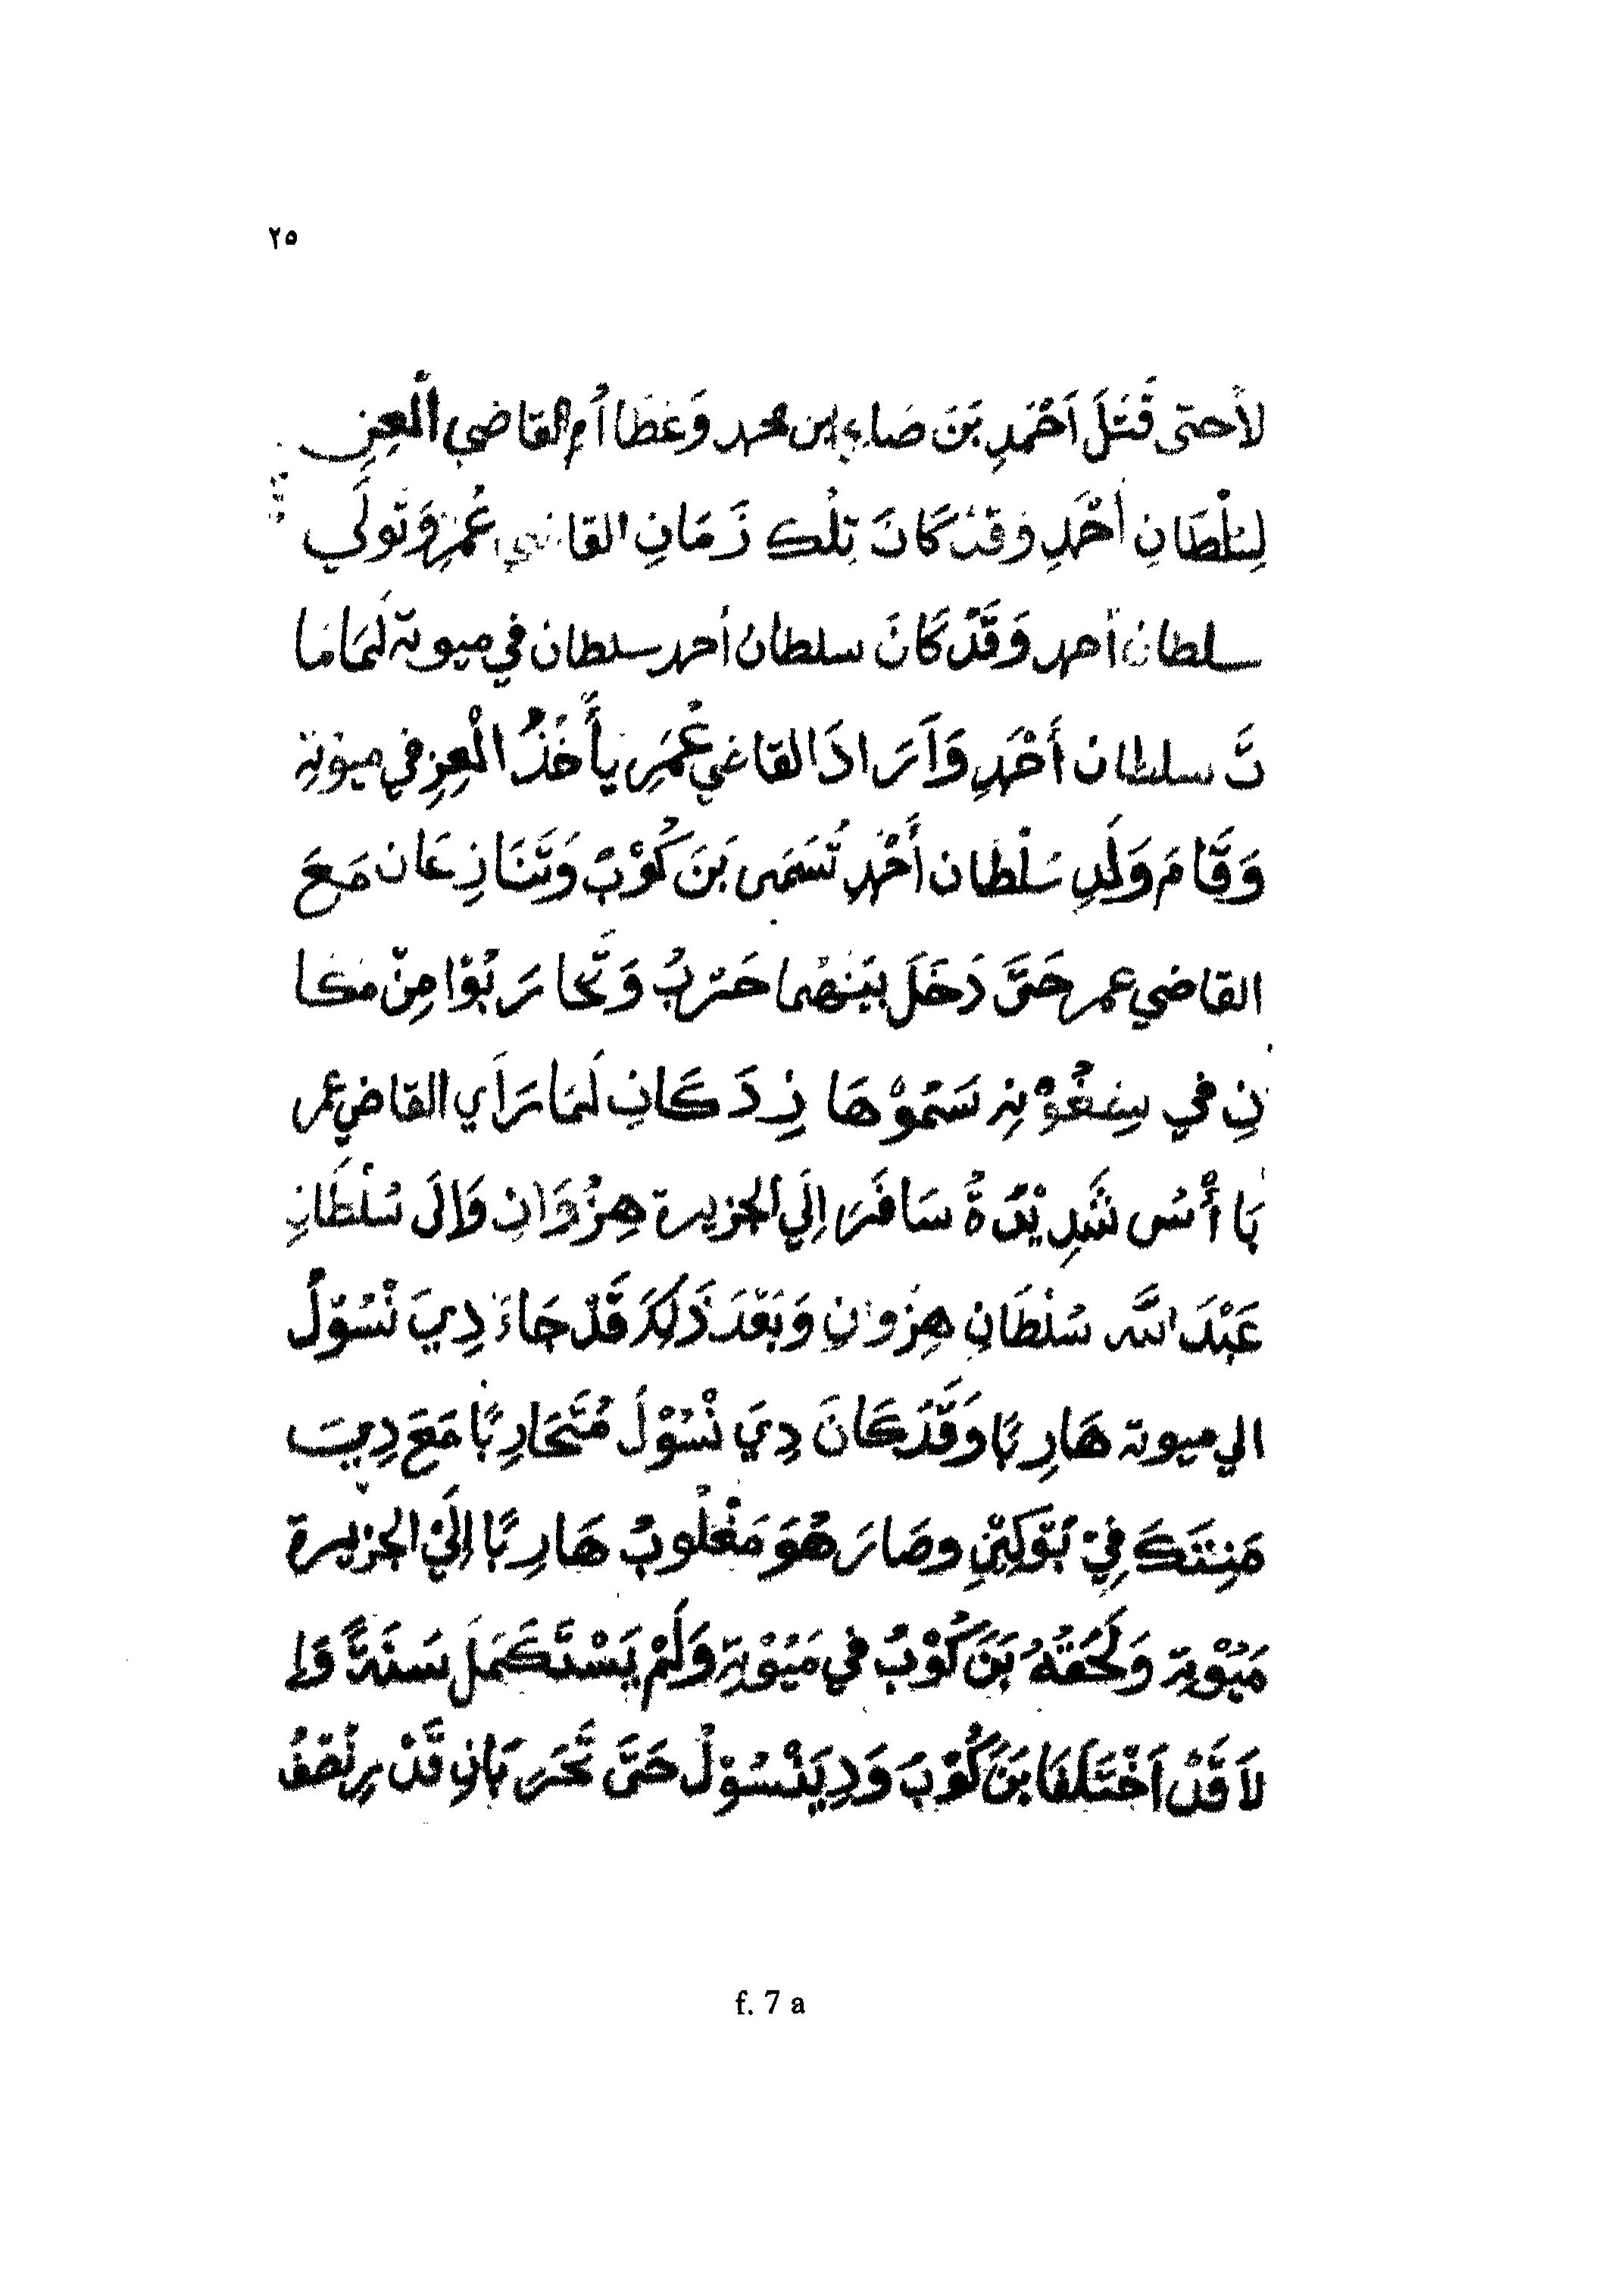 ٢٥
لأحتى قَتَلَ اَحْمَدِ بَنَ صَاءِ ابن محمد وَعَطَا أم القاضي الْعِزِ
لِسُلْطَانِ أَحْمَدِ وَقَدْ كَانَ تِلْكَ زَمَانِ القاضي عُمَرِ وَتَوَلَّي
سلطان أحمد وَقَدْ كَانَ سلطان أحمد سلطان في ميوتة لَمَا مَا
تَ سلطان أَحْمَدِ وَاَرَادَ القاضي عُمَرِ يأَخَذُ الْعِزِ في ميوْتِة
وَقَامَ وَلَدِ سَلْطَان أَحْمَدِ تُسَمَى بَنَ كُوْبُ وَتَنَازِعَان مَعَ
القاضي عمر حَتَّى دَخَلَ بَيَنَهُما حَرْبُ وَتَحَارَبُوْا مِنْ مَكَا
نِ في سِنْغُوْنِ سَمُوْهَا نِدَكَانِ لَمَا رَاَي القاضي عمر
بَا أْسُ شَدِيْدَةُ سَافَرَ اِلَي الجزيرة هِنْزُوَانِ وَاِلَى سُلْطَانِ
عَبْدَ اللَّه سُلْطَانِ هِنْزُوانِ وَبَعْدَ ذَلِكَ قَدْ جَاءَ دِيَ نْسُوْلُ
الي ميوتة هَارِبًا وَقَدْ كَانَ دِيَ نْسُوْلَ مُتَحَارِبًا مَعَ دِيَ
مَنِتَكَ فِيْ بُوَكِيْنِ وصَارَ هُوَ مَغْلُوبُ هَارِبًا اِلَيْ الجزيرة
مَيُوْتِة وَلَحَقَهُ بَنَ كُوْبُ في مَيُوْتِة وَلَمْ يَسْتَكَمَلَ سَنَةً وَاِ
لاَ قَدْ اَخْتَلَفَا بَنَ كُوْبَ وَدِيَنْسُوْلُ حَتَّى تَحَرَبَانِ قَدْ نِصْفُ
f. 7 a